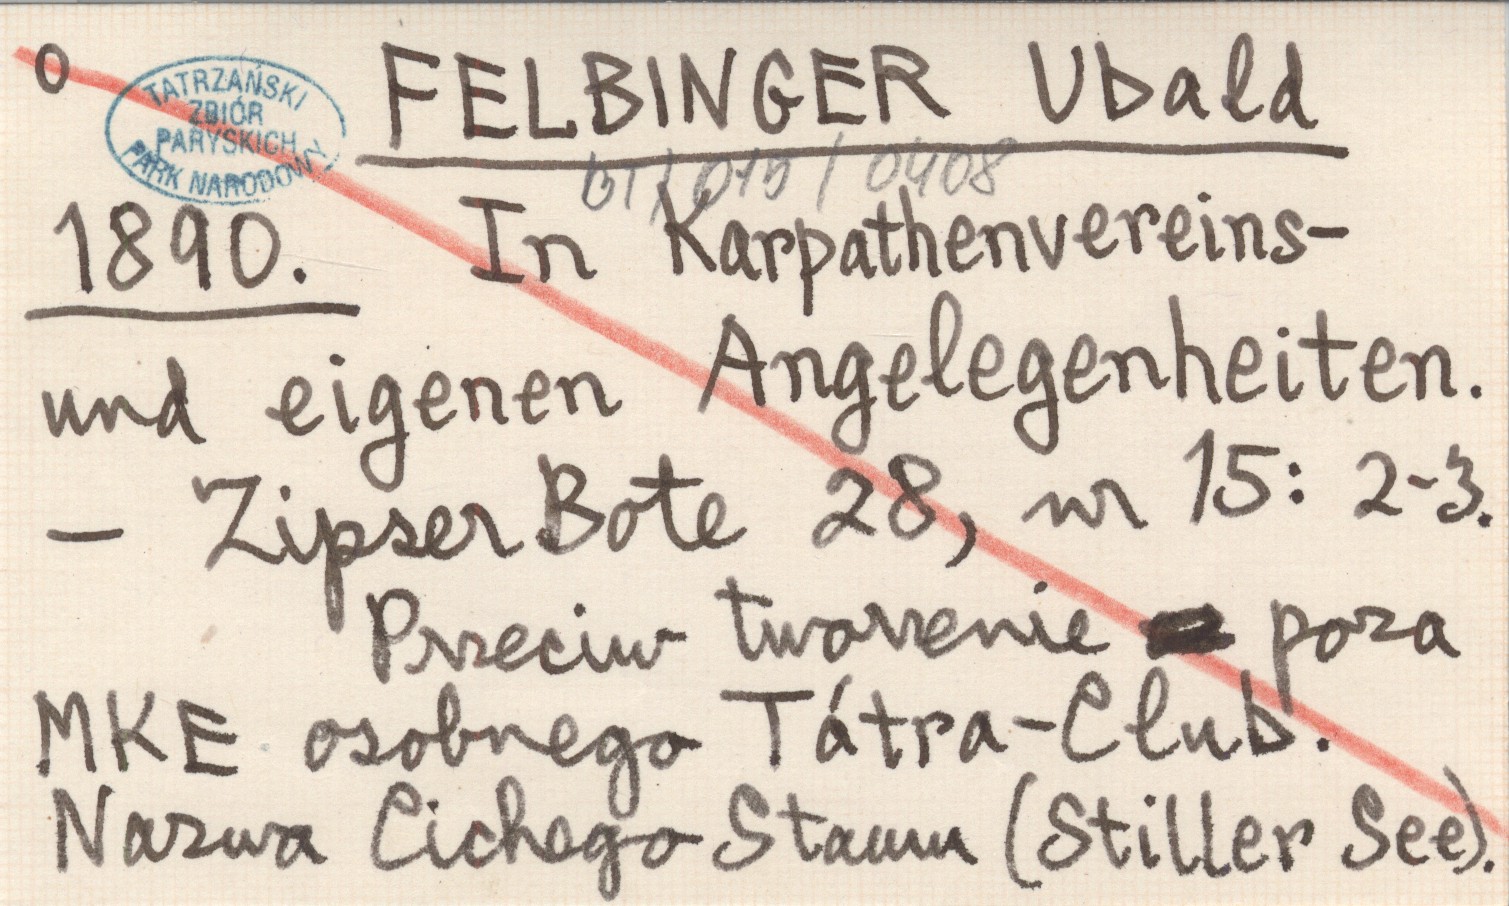 o FELBINGER Ubald
TATRZAŃSKI
ZBIÓR
PARYSKICH
PARK NARODOWY
BT/015/0408
1890. In Karpathenvereins-
und eigenen Angelegenheiten.
— Zipser Bote 28, nr 15: 2-3.
Przeciw tworzenie poza
MKE osobnego Tátra-Club.
Nazwa Cichego Stawu (Stiller See).